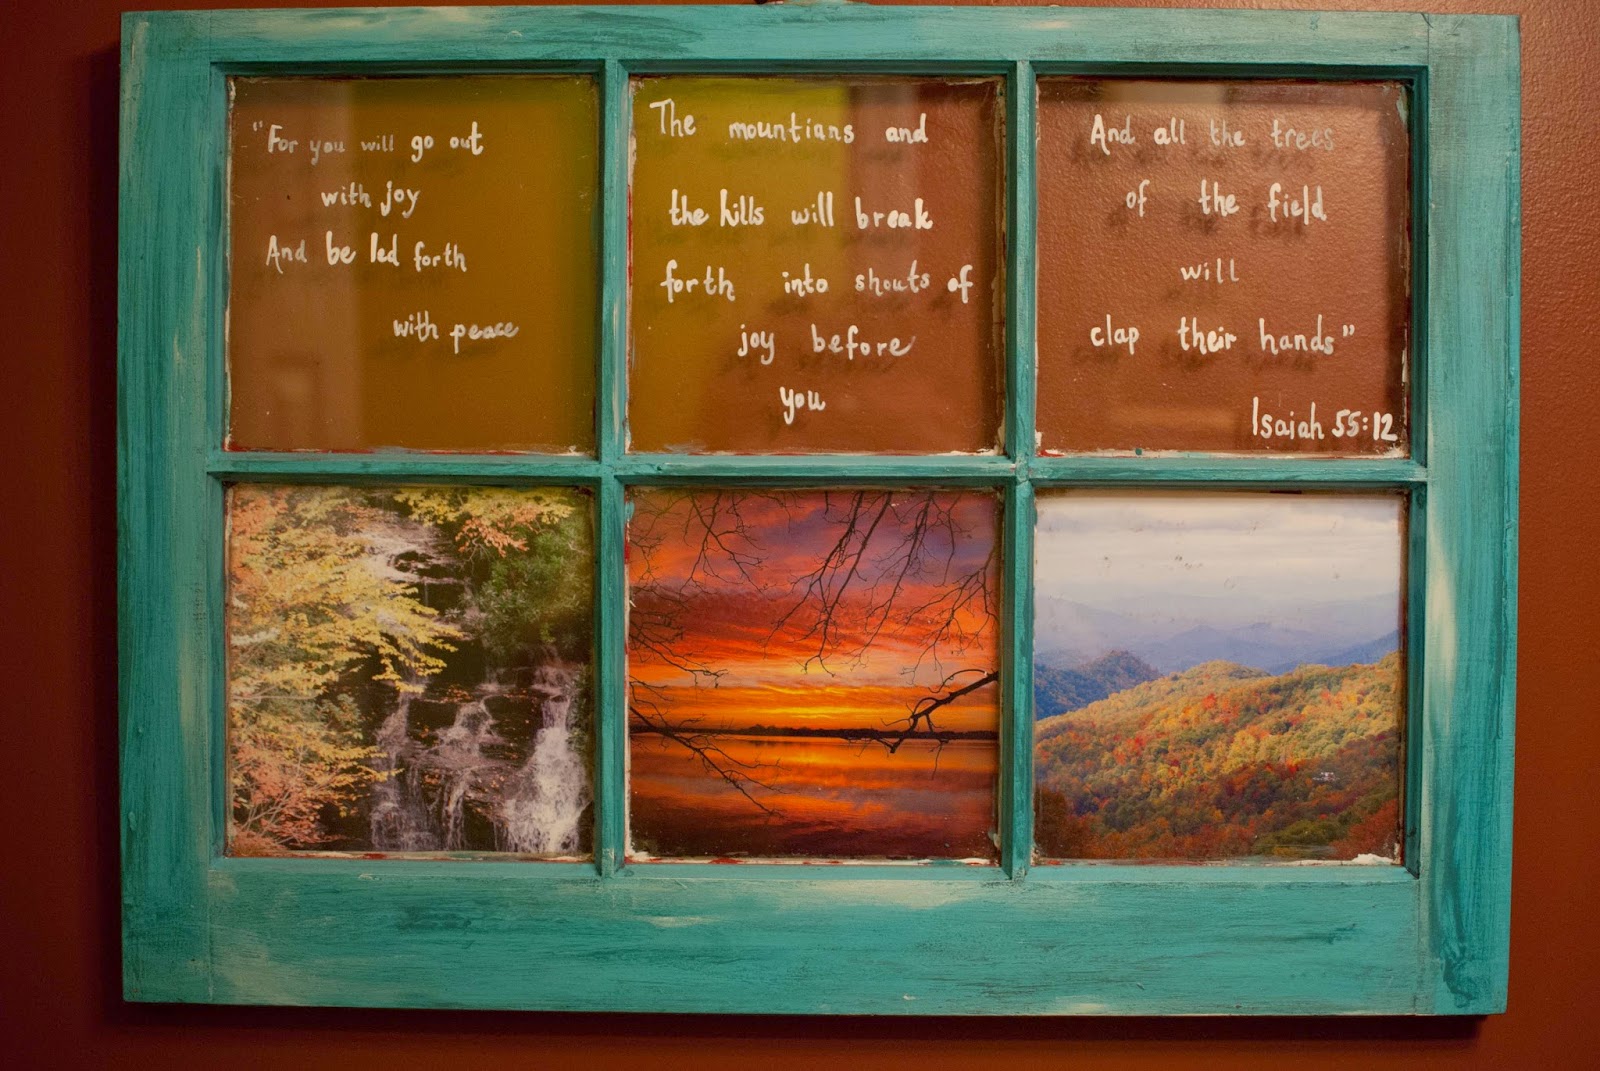 "For you will go out
with joy
And be led forth
with peace
The mountians and
the hills will break
forth into shouts of
joy before
you
And all the trees
of the field
will
clap their hands"
Isaiah 55:12